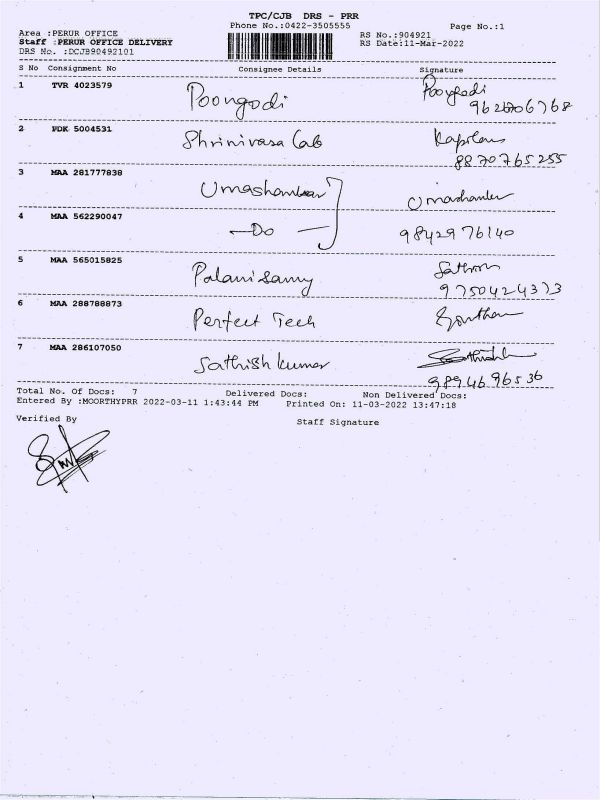 TPC/CJB DRS - PRR
Phone No.:0422-3505555 Page No.:1
Area :PERUR OFFICE RS No.:904921
Staff :PERUR OFFICE DELIVERY RS Date:11-Mar-2022
DRS No. :DCJB90492101
S No Consignment No Consignee Details Signature
1 TVR 4023579 Poongodi Poongodi
2 PDK 5004531 Shrinivasa Lab
8870765255
3 MAA 281777838 Umashankar Umashankar
4 MAA 562290047 Do 9842976140
5 MAA 565015825 Palanisamy
9750424373
6 MAA 288788873 Perfect Tech
7 MAA 286107050 Sathish kumar
9894696536
Total No. Of Docs: 7 Delivered Docs: Non Delivered Docs:
Entered By :MOORTHYPRR 2022-03-11 1:43:44 PM Printed On: 11-03-2022 13:47:18
Verified By Staff Signature